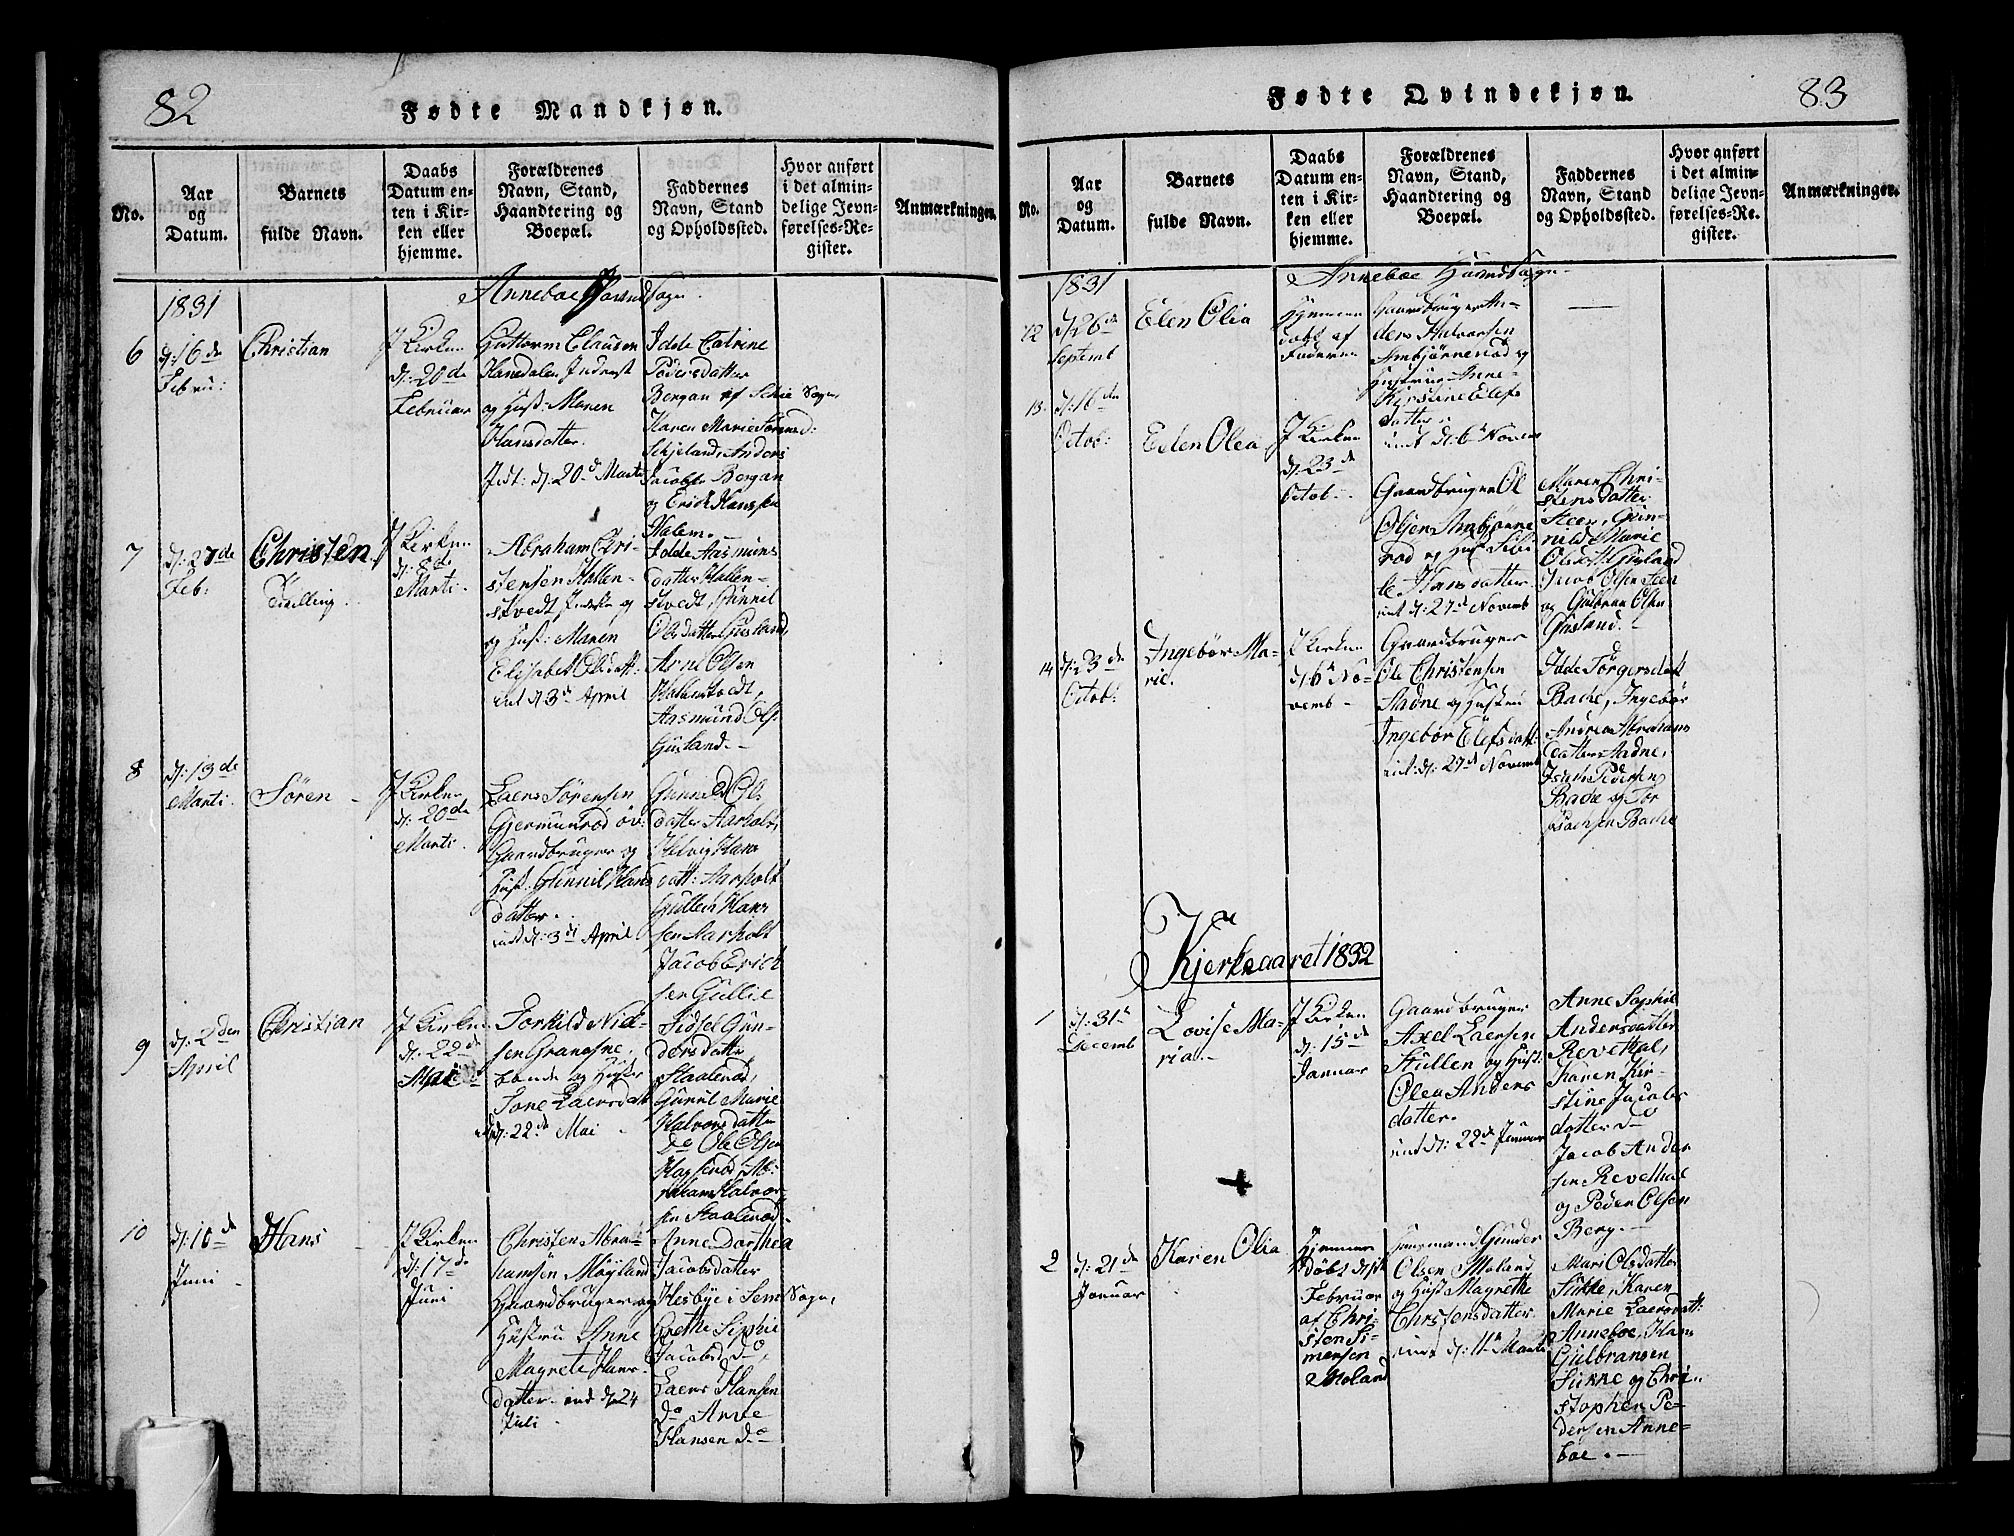 82
Fødte Mandkjøn.
No.
Aar
og
Datum.
Barnets
fulde Navn.
Daabs
Datum en-
ten i Kir-
ken eller
hjemme.
Forældrenes
Navn, Stand,
Haandtering og
Boepæl.
Faddernes
Navn, Stand
og Opholdssted.
Hvor anført
i det almin-
delige Jevn-
førelses-Re-
gister.
Anmærkninger.
Anneboe Sogn.
1831
6
d: 16de
Febru:
Christian
I Kirken
d: 20de
Februar
Guttorm Clausen
Hansdalen Inderst
og Hust: Maren
Hansdatter.
d: 20d Marti
Idde Catrine
Pedersdatter
Bergan af Schie Sogn,
Karen Marie Sørensd:
Schjeland, Anders
Jacobs Bergan
og Erich Hansen
Holem.
7
d: 27de
Feb:
Christen
Tvelling.
I Kirken
d: 8de
Marti.
Abraham Chri-
stensen Hallen-
stvedt, Inderste og
og Hust: Maren
Elisabet Olsdatt.
ind d 3d April
Idde Aasmuns
datter Hallen-
stvedt, Gunnil
Olsdatter Gusland,
Arne Olsen
Hallenstvedt,
Aasmund Ols.
Gusland.
8
d: 13de
Marti.
Søren
I Kirken
d: 20de
Marti.
Laers Sørensen
Gjermunrod øv:
Gaardbruger og
Hust. Gunnil Hans
datter.
ind d: 3d April
Gunnild Ols
datter Aarholt,
Helvig Hans
datt: Aarholt
Gullein Hans
sen Aarholt
Jacob Erich
sen Gullie
9
d: 2den
April
Christian
I Kirken
d: 22de
Mai
Torkild Niel-
sen Granasne,
bonde og Hustrue
Tone Laersdatt
ind d: 22de Mai
Sidsel Gun-
dersdatter
Staalerød,
Gunnil Marie
Halvorsdatter
do Ole Olsen
Haslerød, Ab-
raham Halvor-
sen Staalerød.
10
d: 10de
Juni
Hans
I Kirken
d: 17de
Juni
Christen Abra-
hamsen Møyland
Gaardbruger og
Hustru Anne
Magrete Hans-
datter. ind d 24
Juli
Anne Dorthea
Jacobsdatter
Hesbye i Sem Sogn,
Grethe Sophie
Jacobsd do,
Laers Hansen
do Anne
Hansen do
83
Fødte Qvindekjøn.
No.
Aar
og
Datum.
Barnets
fulde Navn.
Daabs
Datum en-
ten i Kir-
ken eller
hjemme.
Forældrenes
Navn, Stand,
Haandtering og
Boepæl.
Faddernes
Navn, Stand
og Opholdssted.
Hvor anført
i det almin-
delige Jevn-
førelses-Re-
gister.
Anmærkninger.
Anneboe Sogn.
1831
12
d: 26de
Septemb
Elen Olia
Hjemme
døbt af
Faderen
Gaardbruger An-
ders Halvorsen
Ambjørnerød og
Hustrue Anne
Kirstine Elefs
datter.
ind d: 6 Novem
13
d: 16de
Octob:
Eelen Olea
I Kirken
d: 23de
Octob
Gaardbrugen Ol
Olsen Ambjørne
rod og Hust Sibi
le Hansdatter
ind d: 27d Novemb
Maren Chri-
stensdatter
Steen, Gun-
nild Marie
Olsd Gusland
Jacob Olsen Steen
og Gulbran Olsen
Gusland.
14
d: 23de
Octob:
Ingebør Ma-
rie.
I Kirken
d: 6 No-
vemb
Gaardbruger
Ole Christensen
Aadne og Hustru
Ingebør Elefsdatt:
ind: d: 27d Novemb
Idde Torgersdatt
Bache, Ingebør
Andrea Abrahams
datter Aadne,
Isach Pedersen
Bache og Tor
Isachsen Bache
Kjerkeaaret 1832
1
d: 31te
Decemb
Lovise Ma-
ria.
I Kirken
d: 15de
Januar
Gaardbruger
Axel Laersen
Stullen og Hust:
Olea Anders
datter.
ind d: 22de Januar
Anne Sophie
Andersdatter
Revethal,
Karen Kir-
stine Jacobs
datter do
Jacob Ander
sen Revethal
og Peder Olsen
Berg.
2
d: 21de
Januar
Karen Olia
Hjemme
døbt d 1ste
Februar
af Chri-
sten Si-
mensen
Moland
Huusmand Gunder
Olsen Moland
og Hust Magrethe
Christensdatter
ind d: 11te Marti
Mari Olsdatter
Sukke, Karen
Marie Laersdatt:
Anneboe, Hans
Gulbransen
Sukke og Chri-
stopher Pe-
dersen Anne-
boe.